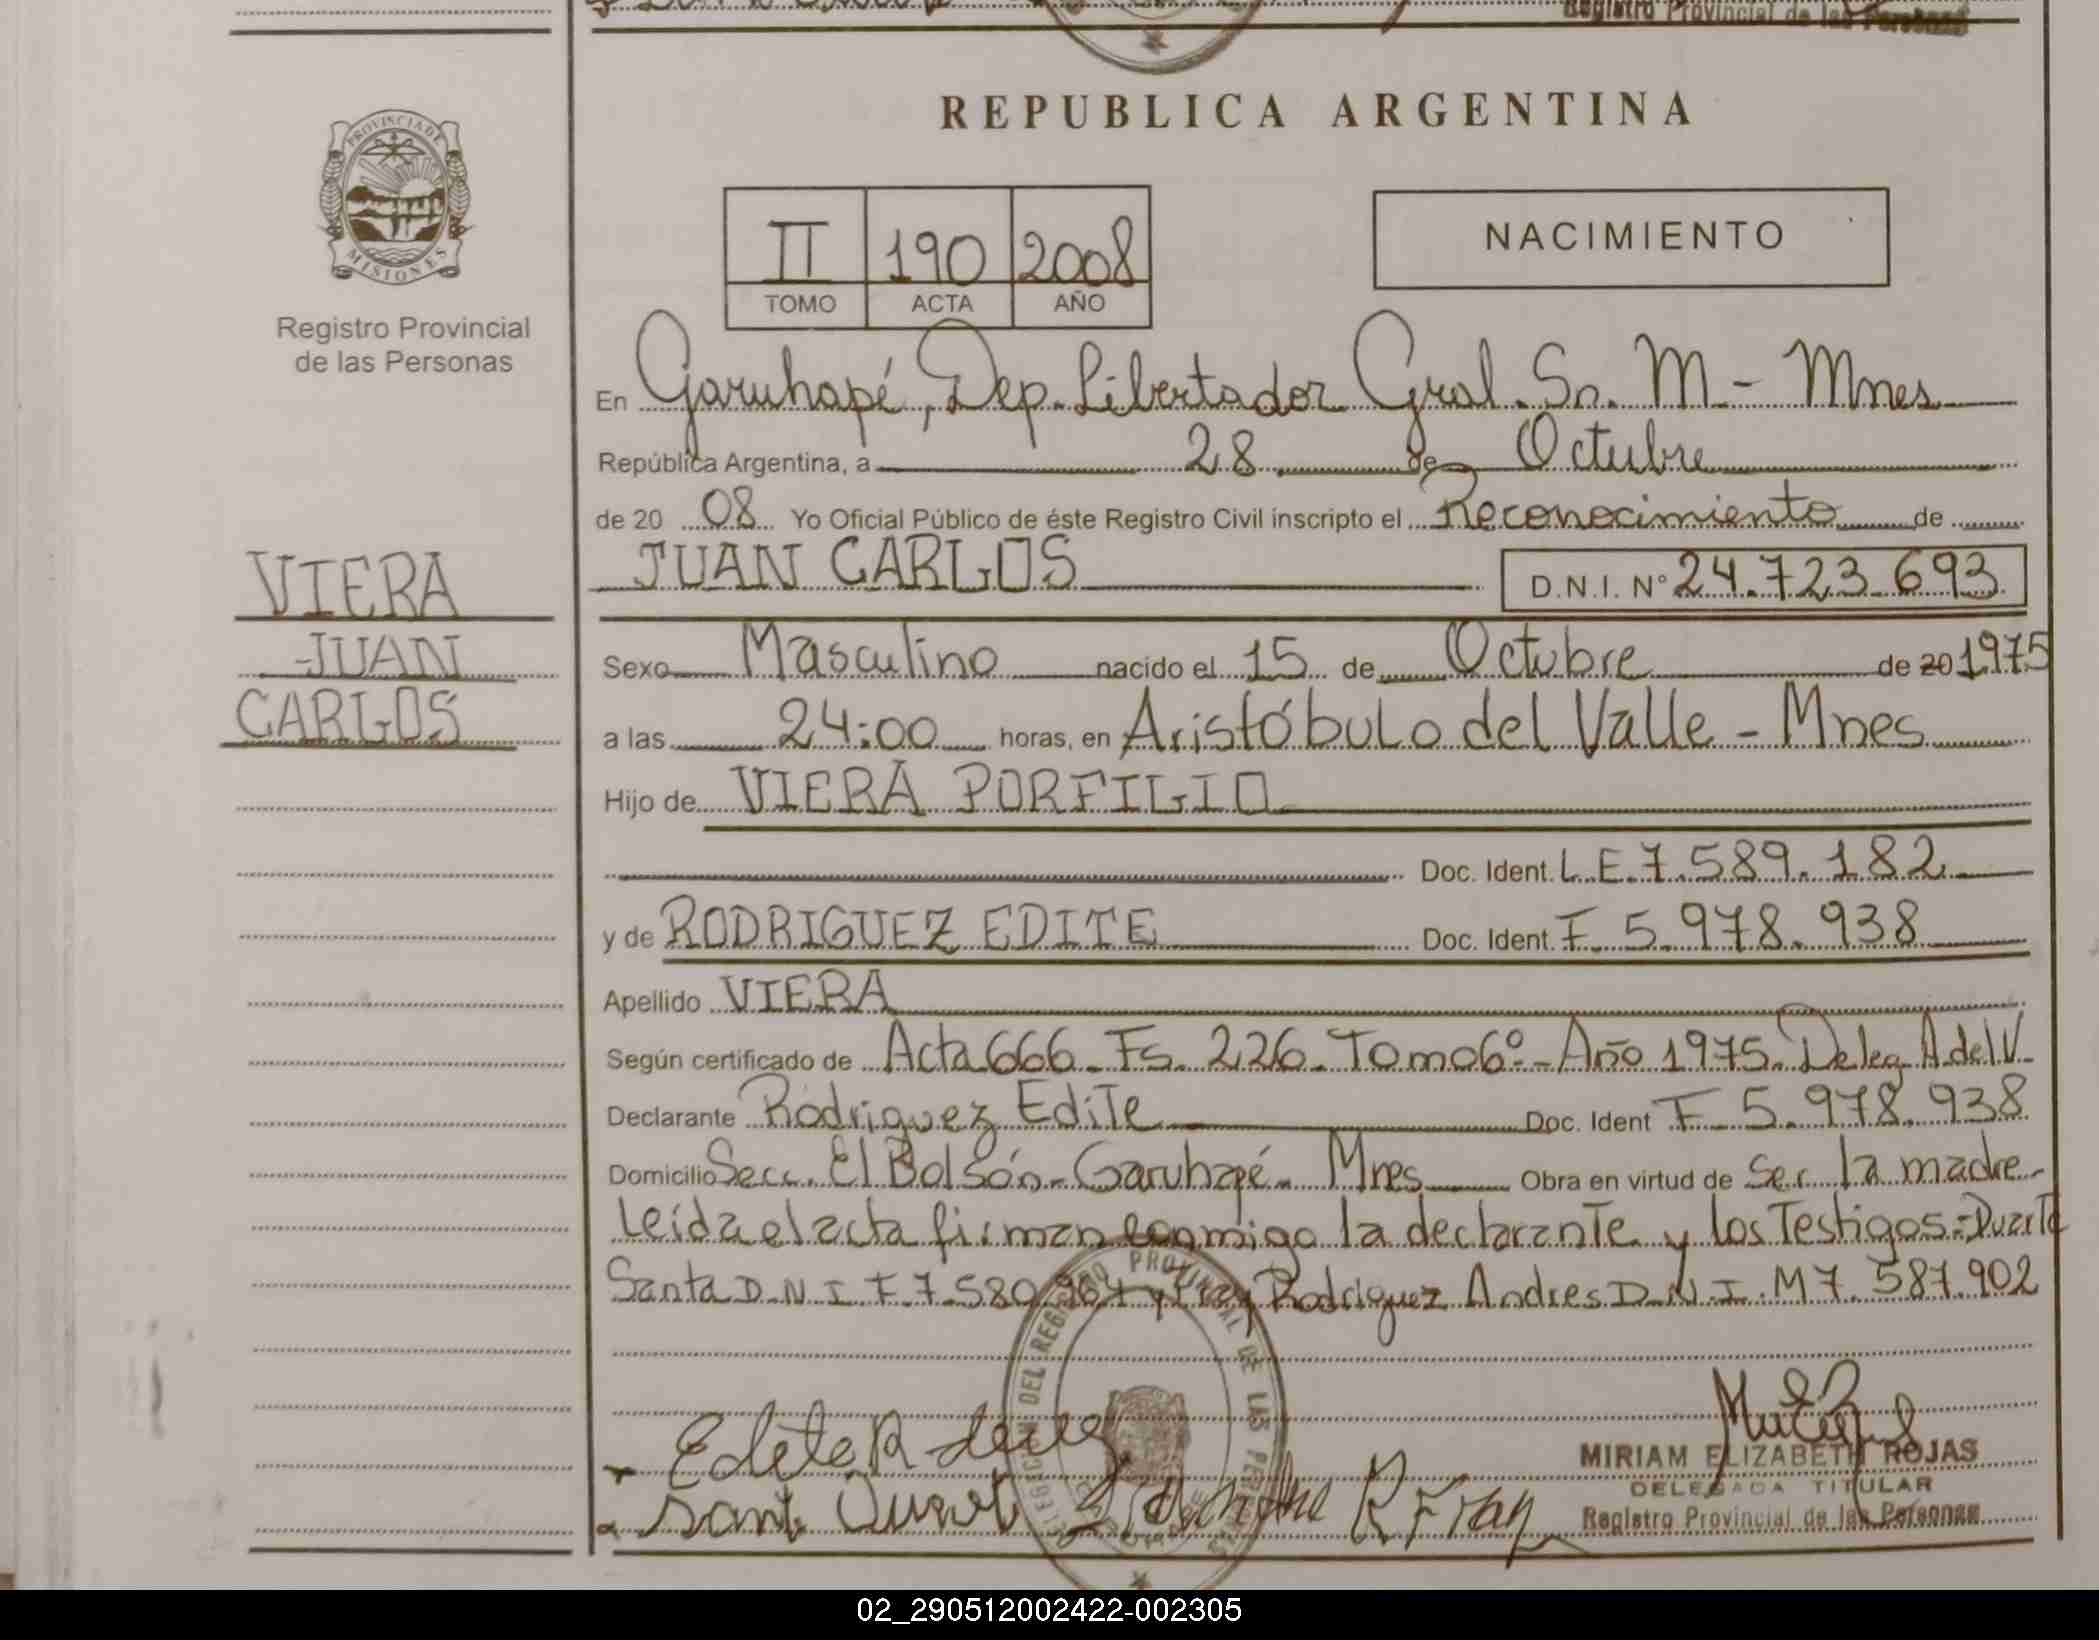 Registro Provincial de las Personas
REPUBLICA ARGENTINA
PROVINCIA DE
MISIONES
Registro Provincial
de las Personas
II 190 2008
TOMO ACTA AÑO
NACIMIENTO
En Garuhapé, Dep. Libertador Gral. Sn. M - Mnes
República Argentina, a 28 de Octubre
de 20 08 Yo Oficial Público de éste Registro Civil inscripto el Reconocimiento de
JUAN CARLOS D.N.I. Nº 24.723.693
VIERA
JUAN
CARLOS
Sexo Masculino nacido el 15 de Octubre de 20 1975
a las 24:00 horas, en Aristóbulo del Valle - Mnes
Hijo de VIERA PORFILIO
Doc. Ident. L.E. 7.589.182
y de RODRIGUEZ EDITE Doc. Ident. F 5.978.938
Apellido VIERA
Según certificado de Acta 666 - Fs. 226 - Tomo 6º - Año 1975. Deleg. A. del V.
Declarante Rodriguez Edite Doc. Ident F 5.978.938
Domicilio Secc. El Bolsón - Garuhapé - Mnes Obra en virtud de Ser la madre -
Leída el acta firman conmigo la declarante y los Testigos = Duarte
Santa D.N.I F 7.580.964 y Rodriguez Andres D.N.I. M 7.587.902
MIRIAM ELIZABETH ROJAS
DELEGADA TITULAR
Registro Provincial de las Personas
02_290512002422-002305